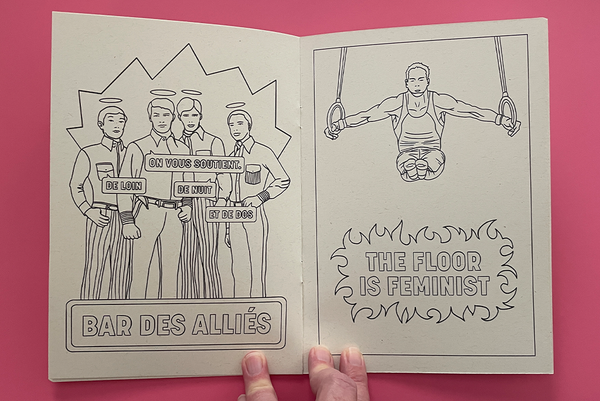 ON VOUS SOUTIENT.
DE LOIN
DE NUIT
ET DE DOS
BAR DES ALLIÉS
THE FLOOR
IS FEMINIST